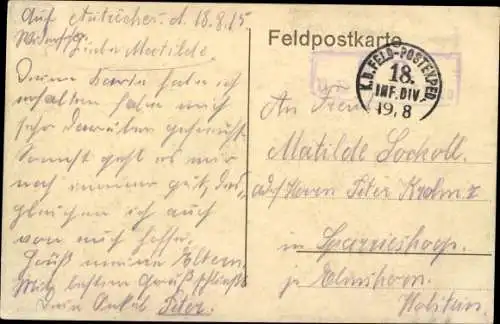 Auf 18.8.15
Liebe Matilde
Deine Karte habe ich
erhalten habe mich
sehr darüber gefreut
Sonst geht es mir
noch immer gut, das
gleichen ich auch
von euch hoffe.
Gruß meine Eltern
Mit besten Gruß schließt
Dein Onkel Peter.
Feldpostkarte
K.B. FELD-POSTEXPED.
18.
INF. DIV.
19. 8
An
Matilde
Peter
in Sparrieshoop
Elmshorn.
Holstein.